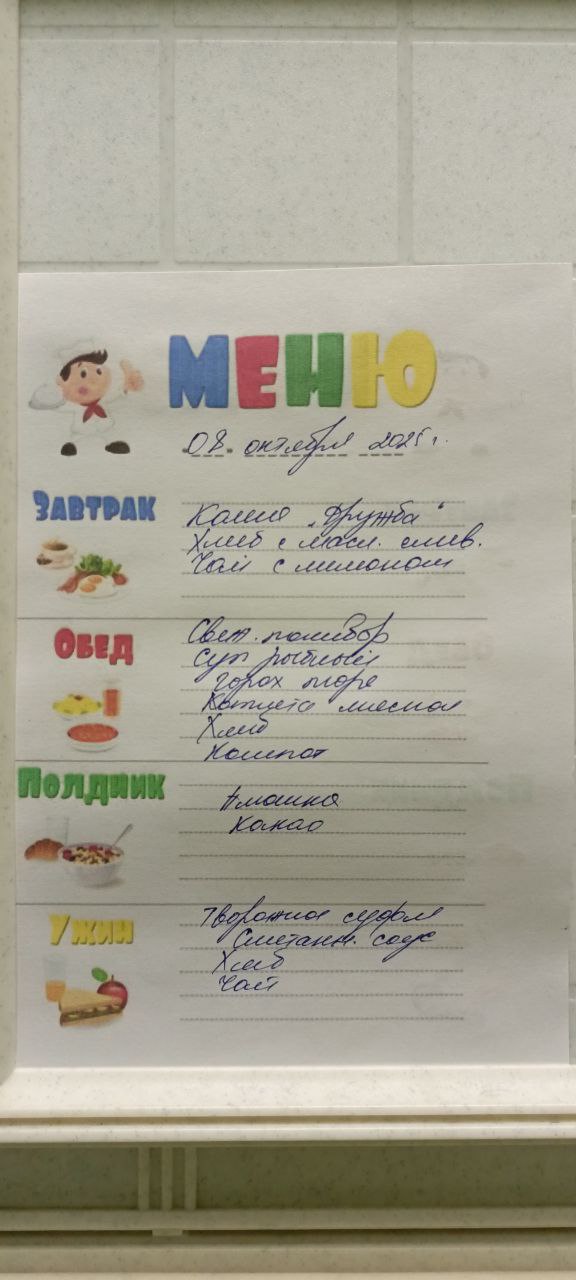 МЕНЮ
08 октября 2025 г.
ЗАВТРАК
Каша "Дружба"
Хлеб с масл. слив.
Чай с лимоном
ОБЕД
Свеж. помидор
Суп рыбный
горох пюре
Котлета мясная
Хлеб
Компот
ПОЛДНИК
Какао
УЖИН
Творожное суфле
Сметанн. соус
Хлеб
Чай